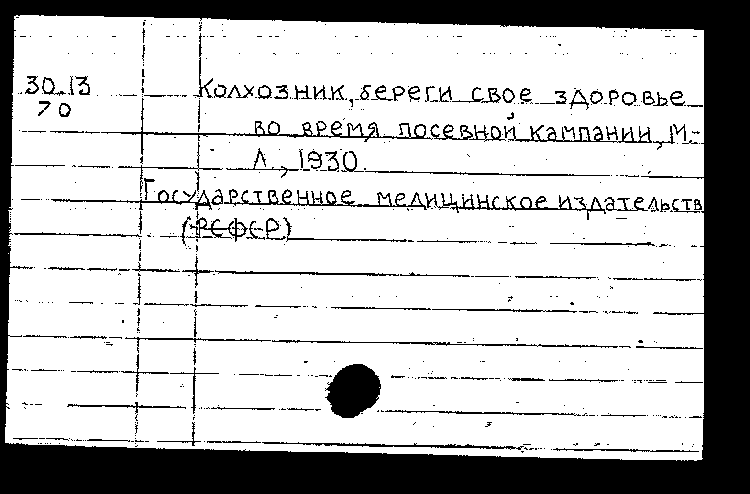 30.13 Колхозник, береги свое здоровье
70 во время посевной кампании, М.-
Л., 1930.
Государственное медицинское издательств
(РСФСР)